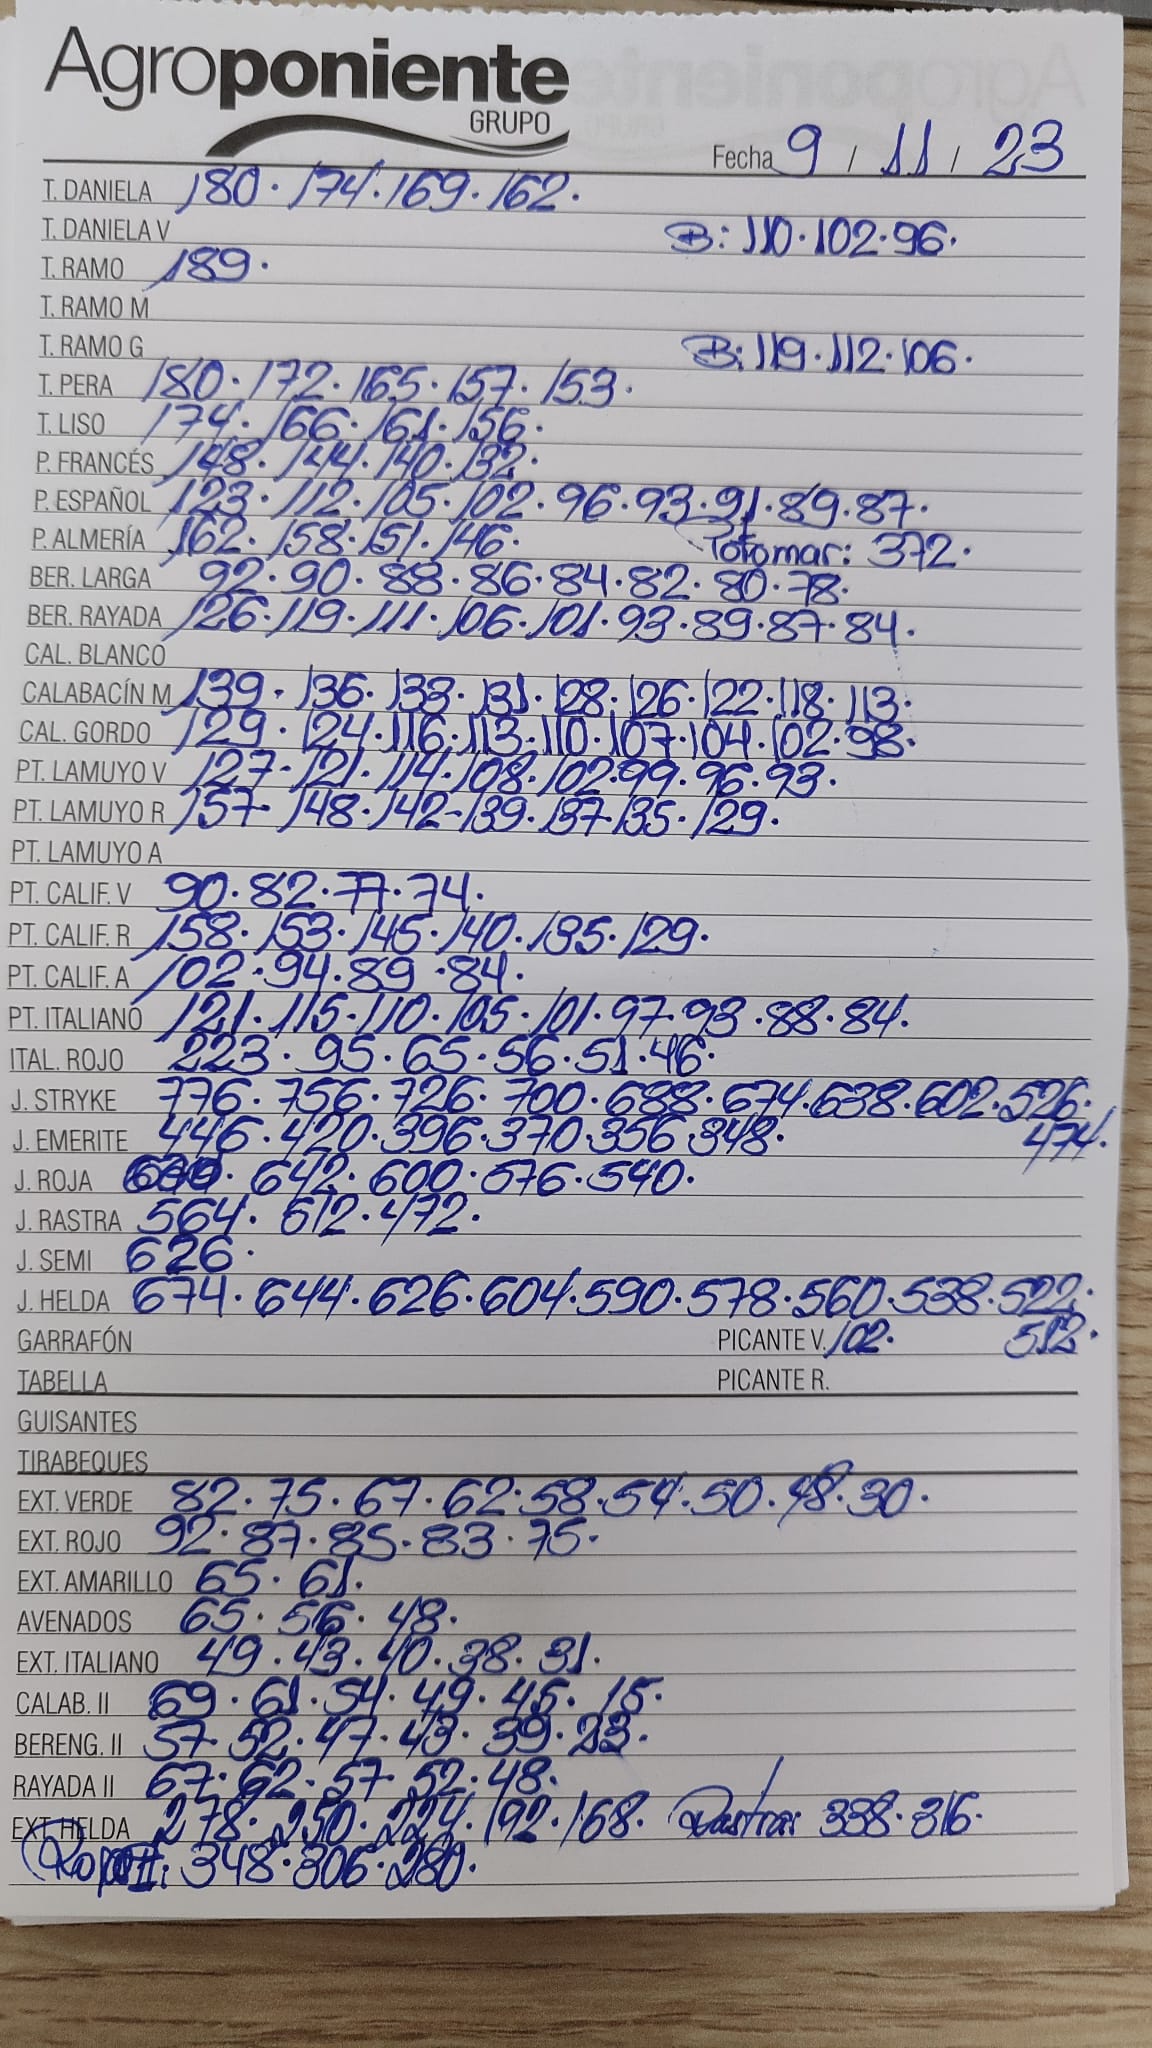 Agroponiente
GRUPO
Fecha 9 / 11 / 23
T. DANIELA 180. 174. 169. 162.
T. DANIELA V B: 110. 102. 96.
T. RAMO 189.
T. RAMO M
T. RAMO G B: 119. 112. 106.
T. PERA 180. 172. 165. 157. 153.
T. LISO 174. 166. 161. 156.
P. FRANCÉS 148. 144. 140. 132.
P. ESPAÑOL 123. 112. 105. 102. 96. 93. 91. 89. 87.
P. ALMERÍA 162. 158. 151. 146. Totomar: 372.
BER. LARGA 92. 90. 88. 86. 84. 82. 80. 78.
BER. RAYADA 126. 119. 111. 106. 101. 93. 89. 87. 84.
CAL. BLANCO
CALABACÍN M 139. 136. 133. 131. 128. 126. 122. 118. 113.
CAL. GORDO 129. 124. 116. 113. 110. 107. 104. 102. 98.
PT. LAMUYO V 127. 121. 114. 108. 102. 99. 96. 93.
PT. LAMUYO R 157. 148. 142. 139. 137. 135. 129.
PT. LAMUYO A
PT. CALIF. V 90. 82. 77. 74.
PT. CALIF. R 158. 153. 145. 140. 135. 129.
PT. CALIF. A 102. 94. 89. 84.
PT. ITALIANO 121. 115. 110. 105. 101. 97. 93. 88. 84.
ITAL. ROJO 223. 95. 65. 56. 51. 46.
J. STRYKE 776. 756. 726. 700. 688. 674. 638. 602. 526.
474.
J. EMERITE 446. 420. 396. 370. 356. 348.
J. ROJA 642. 600. 576. 540.
J. RASTRA 564. 512. 472.
J. SEMI 626.
J. HELDA 674. 644. 626. 604. 590. 578. 560. 538. 522.
512.
GARRAFÓN PICANTE V. 102.
TABELLA PICANTE R.
GUISANTES
TIRABEQUES
EXT. VERDE 82. 75. 67. 62. 58. 54. 50. 48. 30.
EXT. ROJO 92. 87. 85. 83. 75.
EXT. AMARILLO 65. 61.
AVENADOS 65. 56. 48.
EXT. ITALIANO 49. 43. 40. 38. 31.
CALAB. II 69. 61. 54. 49. 45. 15.
BERENG. II 57. 52. 47. 43. 39. 23.
RAYADA II 67. 62. 57. 52. 48.
EXT. HELDA 278. 250. 224. 192. 168. Rastra: 338. 316.
348. 306. 280.